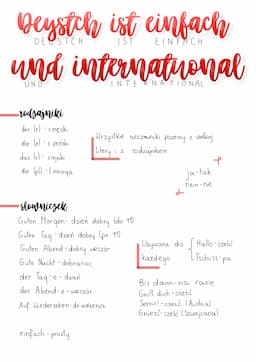 Deystch ist einfach
DEUSTCH IST EINFACH
und international
UND INTERNATIONAL
rodzajniki
der (r) - męski
die (e) - żeński
das (s) - nijaki
die (pl) - l.mnoga
Wszystkie rzeczowniki piszemy z wielkiej
litery i z rodzajnikiem
ja - tak
nein - nie
słowniczek
Guten Morgen - dzień dobry (do 11)
Guten Tag - dzień dobry (po 11)
Guten Abend - dobry wieczór
Gute Nacht - dobranoc
der Tag - e - dzień
der Abend - e - wieczór
Auf Wiedersehen - do widzenia
einfach - prosty
Używane do
każdego
Hallo - cześć
Tschuss - pa
Bis dann - na razie
Gruß dich - cześć
Servus! - cześć (Austria)
Grüezi! - cześć (Szwajcaria)